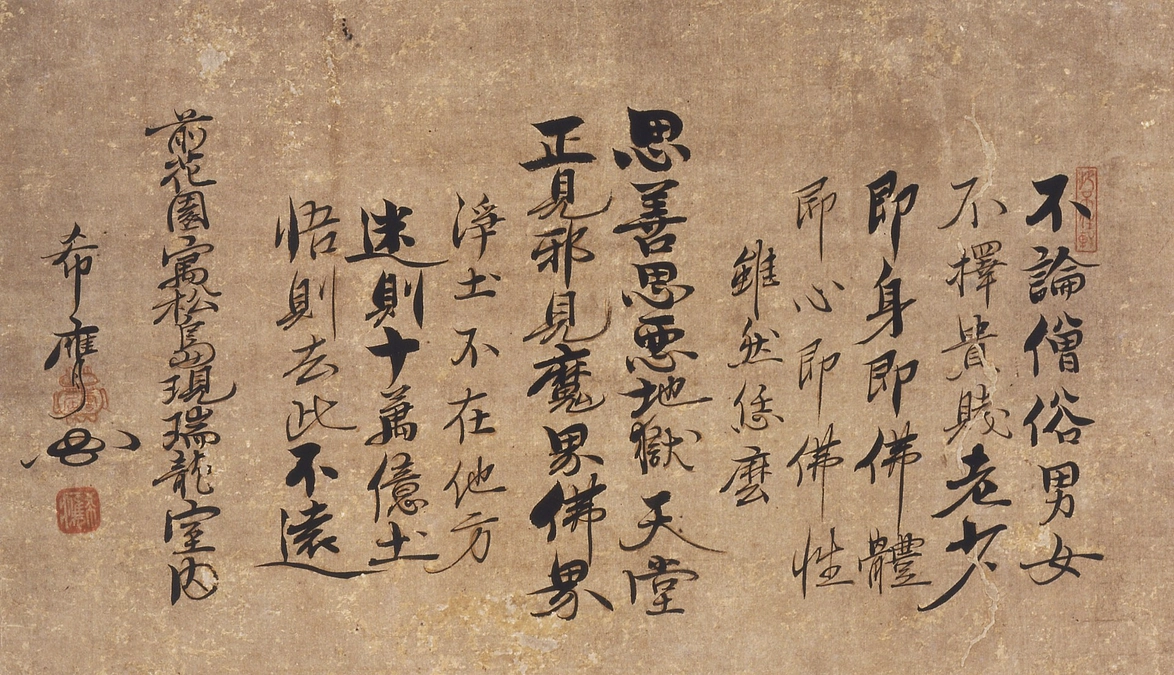 不論僧俗男女
不擇貴賤老少
即身即佛體
即心即佛性
雖然恁麼
思善思惡地獄天堂
正見邪見魔界佛界
淨土不在他方
迷則十萬億土
悟則去此不遠
前花園寓松島現瑞龍室内
希膺